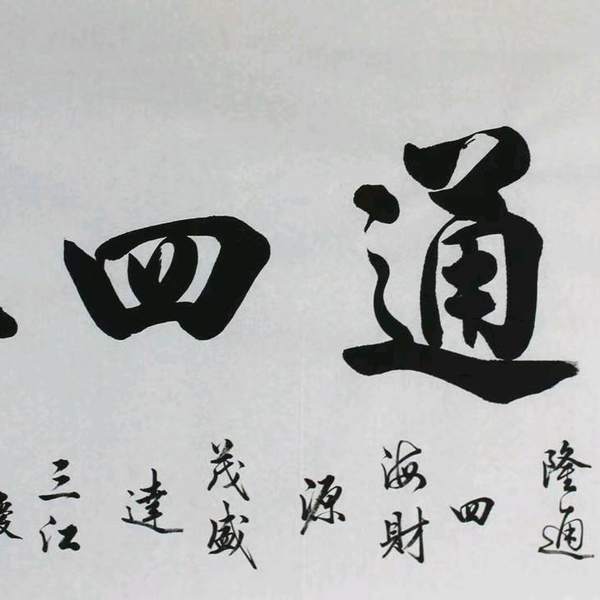 通四
隆通
四
海財
源
茂盛
達
三江